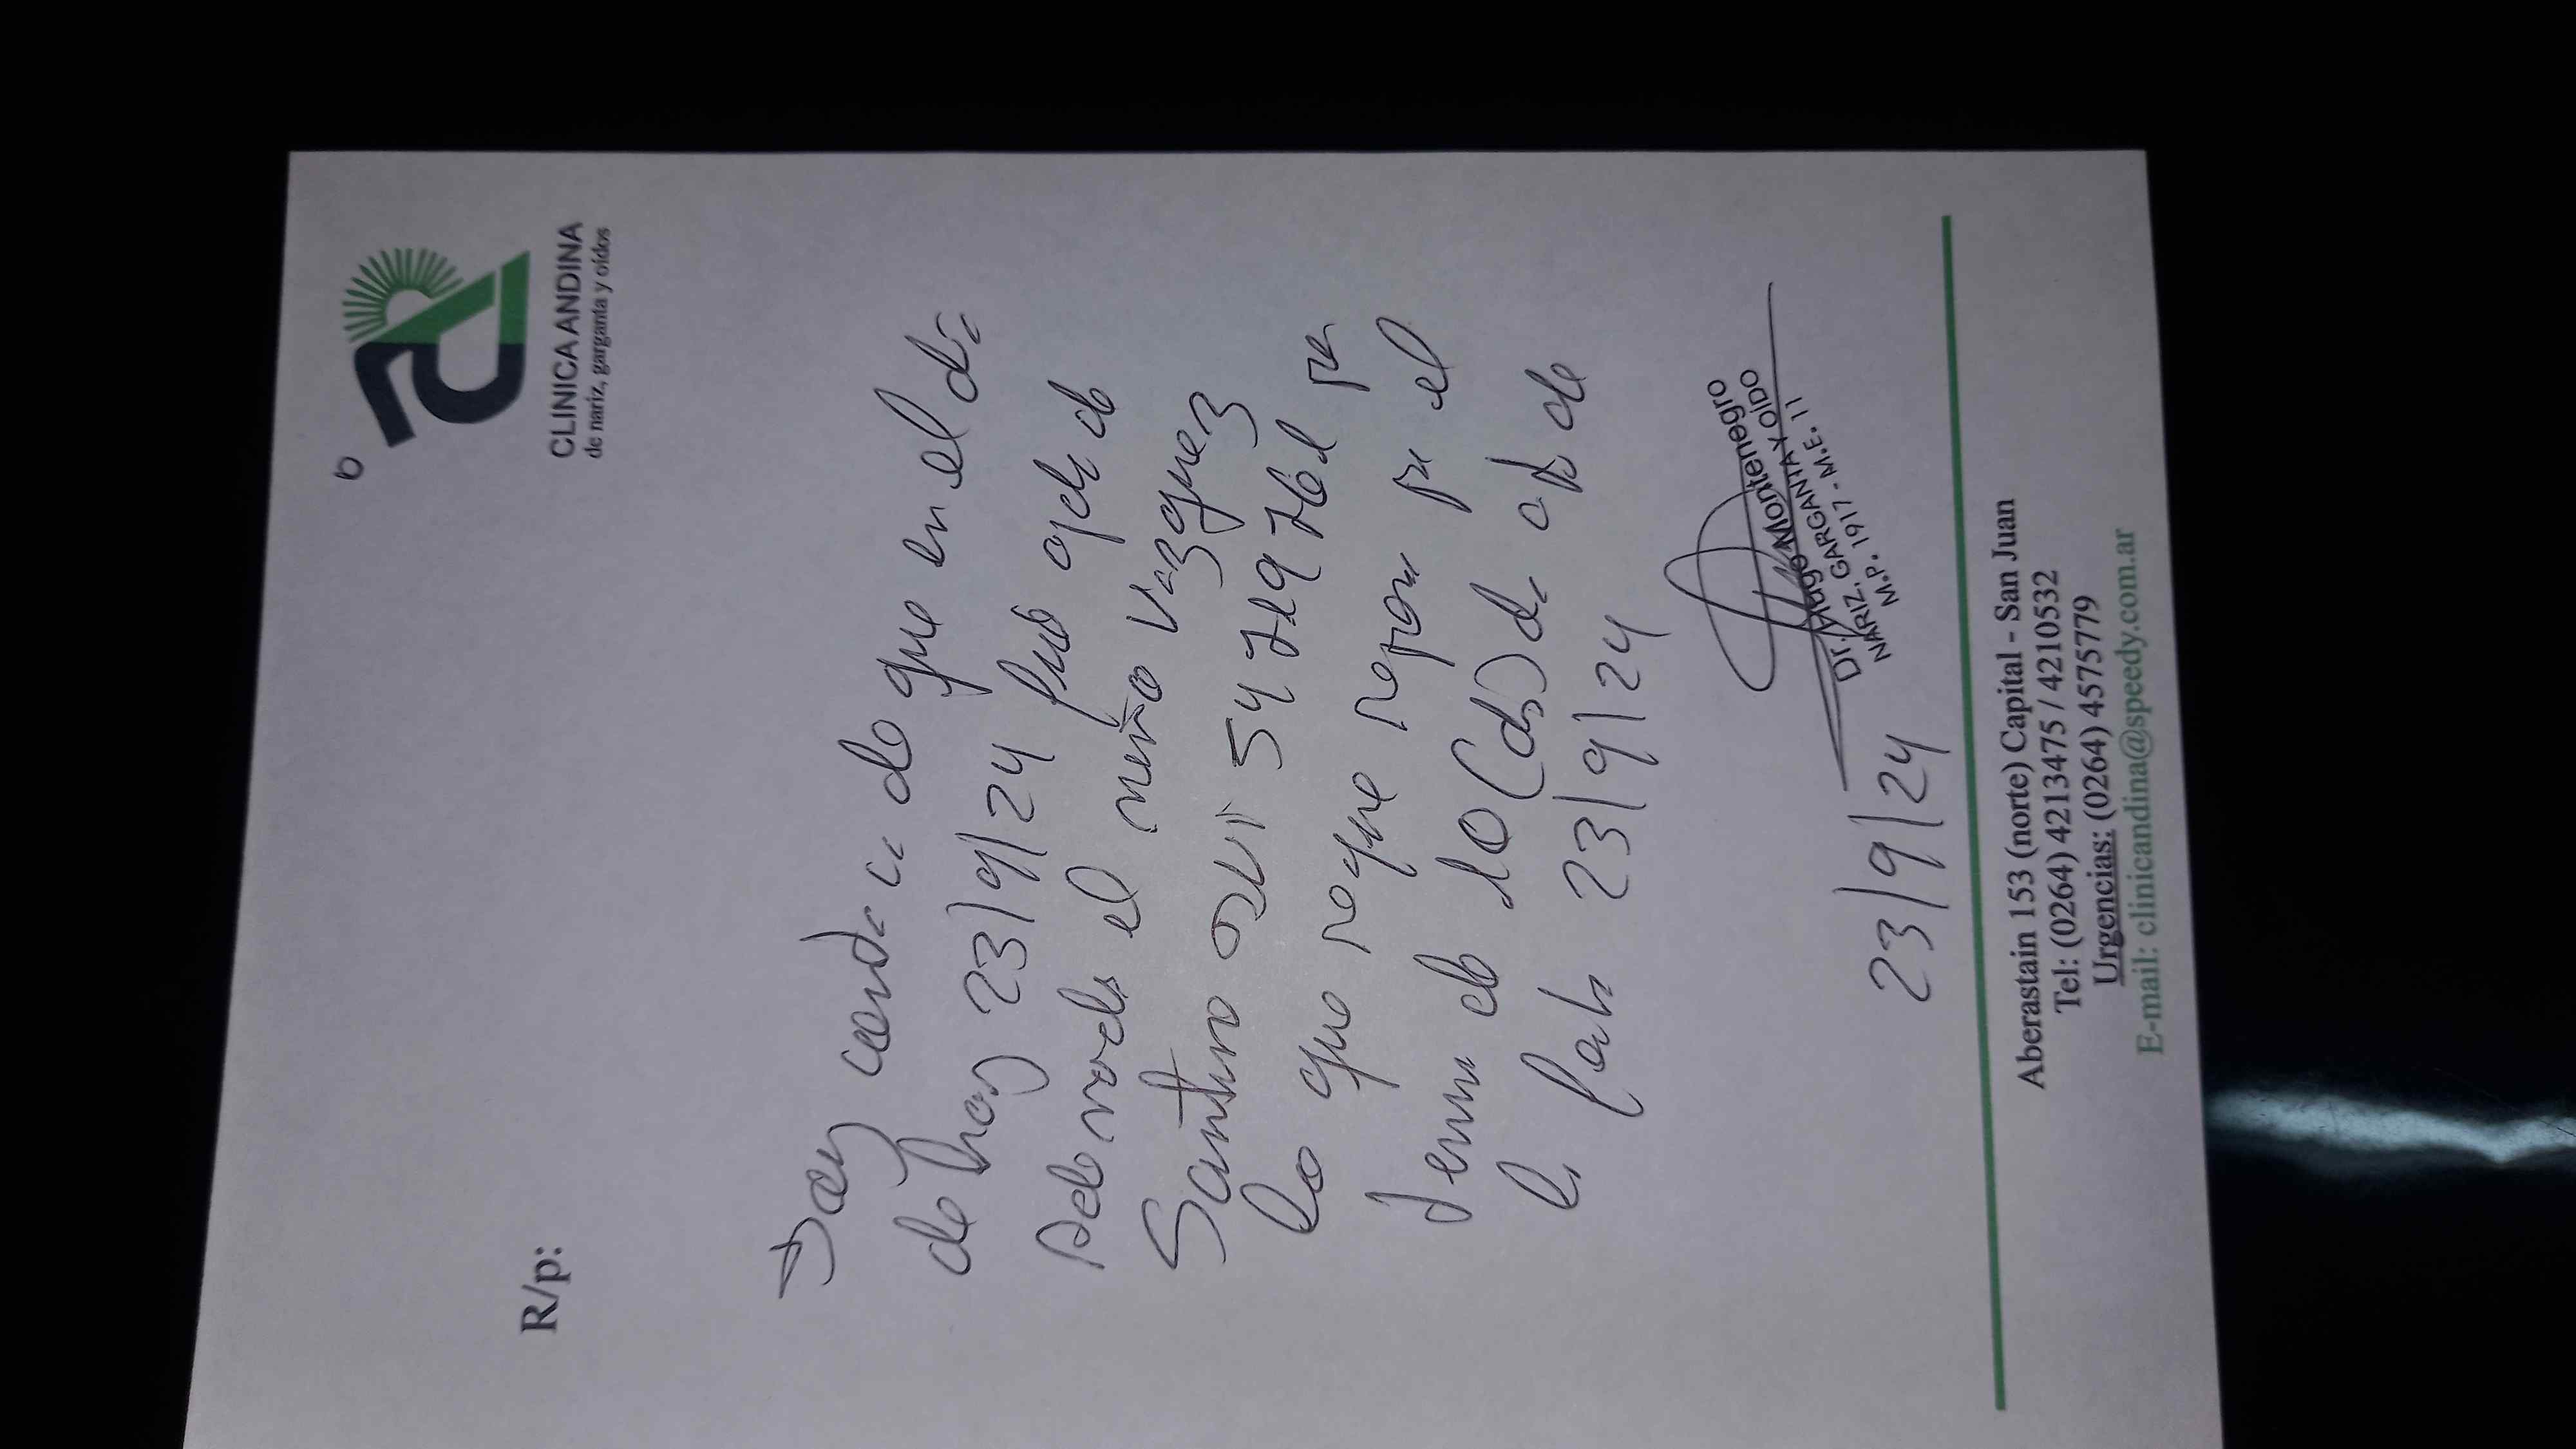 CLINICA ANDINA
de nariz, garganta y oídos
R/p:
Doy constancia de que en el día
de hoy 23/9/24 fue operado de
el niño Vazquez
Santino DNI 54
lo que requiere reposo por el
de 10 (diez) días de
la fecha 23/9/24
Dr. Hugo Montenegro
NARIZ, GARGANTA Y OÍDO
M.P. 1917 - M.E. 11
23/9/24
Aberastain 153 (norte) Capital - San Juan
Tel: (0264) 4213475 / 4210532
Urgencias: (0264) 45757​79
E-mail: clinicandina@speedy.com.ar